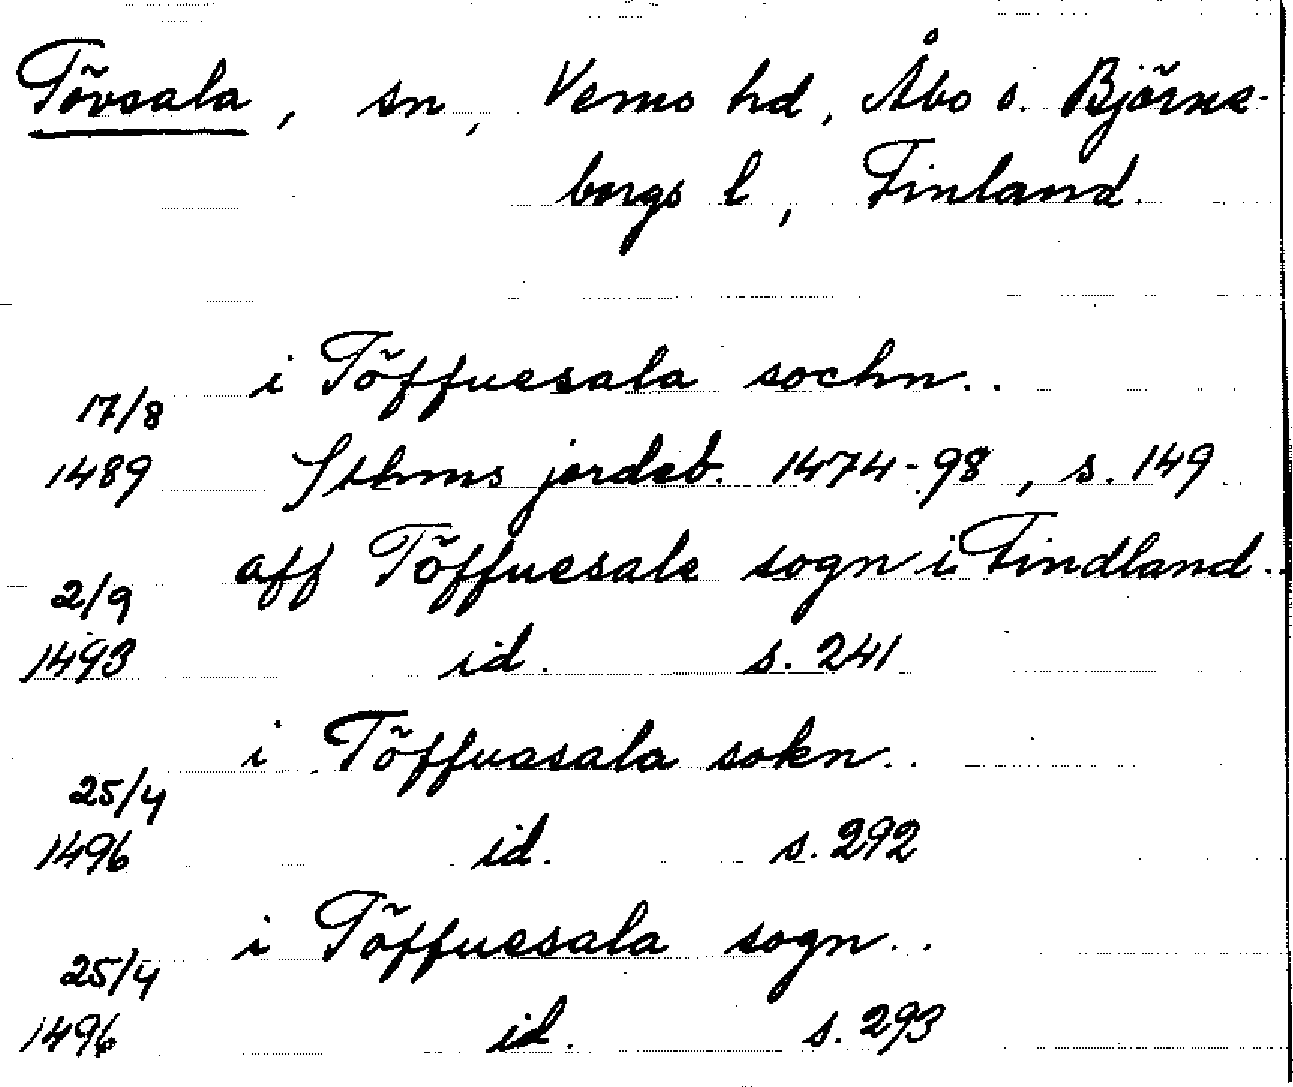 Tövsala, sn, Vemo hd, Åbo o. Björne-
borgs l, Finland.
i Töffuesala sochn..
17/8
1489 Sthms jordeb. 1474-98, s. 149
aff Töffuesale sogn i Findland..
2/9
1493 id. s. 241
i Töffuasala sokn..
25/4
1496 id. s. 292
i Töffuesala sogn..
25/4
1496 id. s. 293